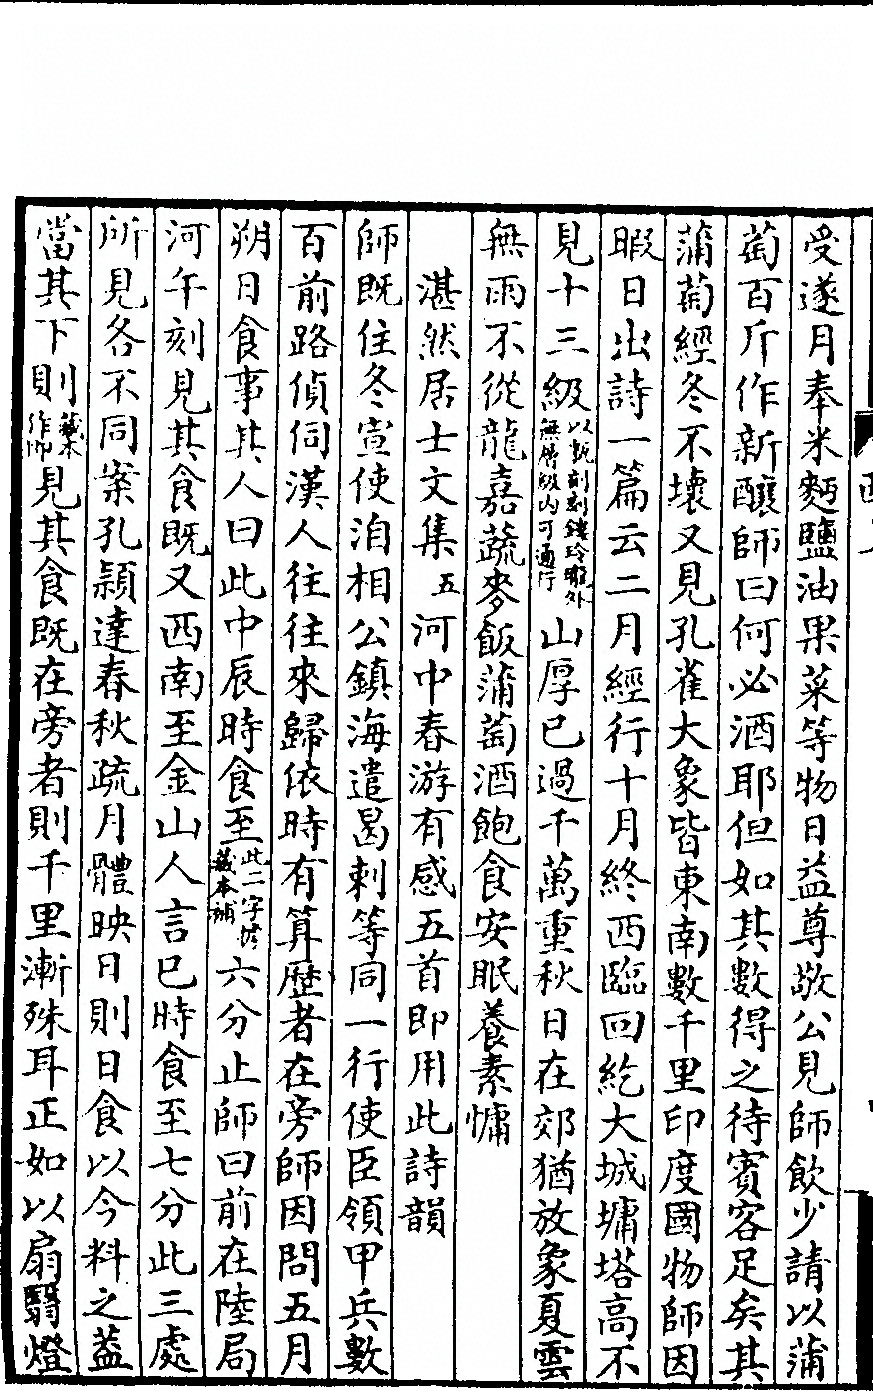 受遂月奉米麪鹽油果菜等物日益尊敬公見師飲少請以蒲
萄百斤作新釀師曰何必酒耶但如其數得之待賓客足矣其
蒲萄經冬不壞又見孔雀大象皆東南數千里印度國物師因
暇日出詩一篇云二月經行十月終西臨回紇大城墉塔高不
見十三級以甎刻鏤玲瓏外無層級內可通行山厚已過千萬重秋日在郊猶放象夏雲
無雨不從龍嘉蔬麥飯蒲萄酒飽食安眠養素慵
湛然居士文集五河中春游有感五首即用此詩韻
師既住冬宣使洎相公鎮海遣曷剌等同一行使臣領甲兵數
百前路偵伺漢人往往來歸依時有算歷者在旁師因問五月
朔日食事其人曰此中辰時食至此二字從藏本補六分止師曰前在陸局
河午刻見其食既又西南至金山人言巳時食至七分此三處
所見各不同案孔穎達春秋疏月體映日則日食以今料之蓋
當其下則藏本作即見其食既在旁者則千里漸殊耳正如以扇翳燈